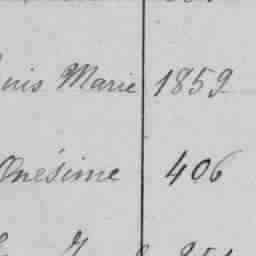 uis Marie 1859
Onésime 406